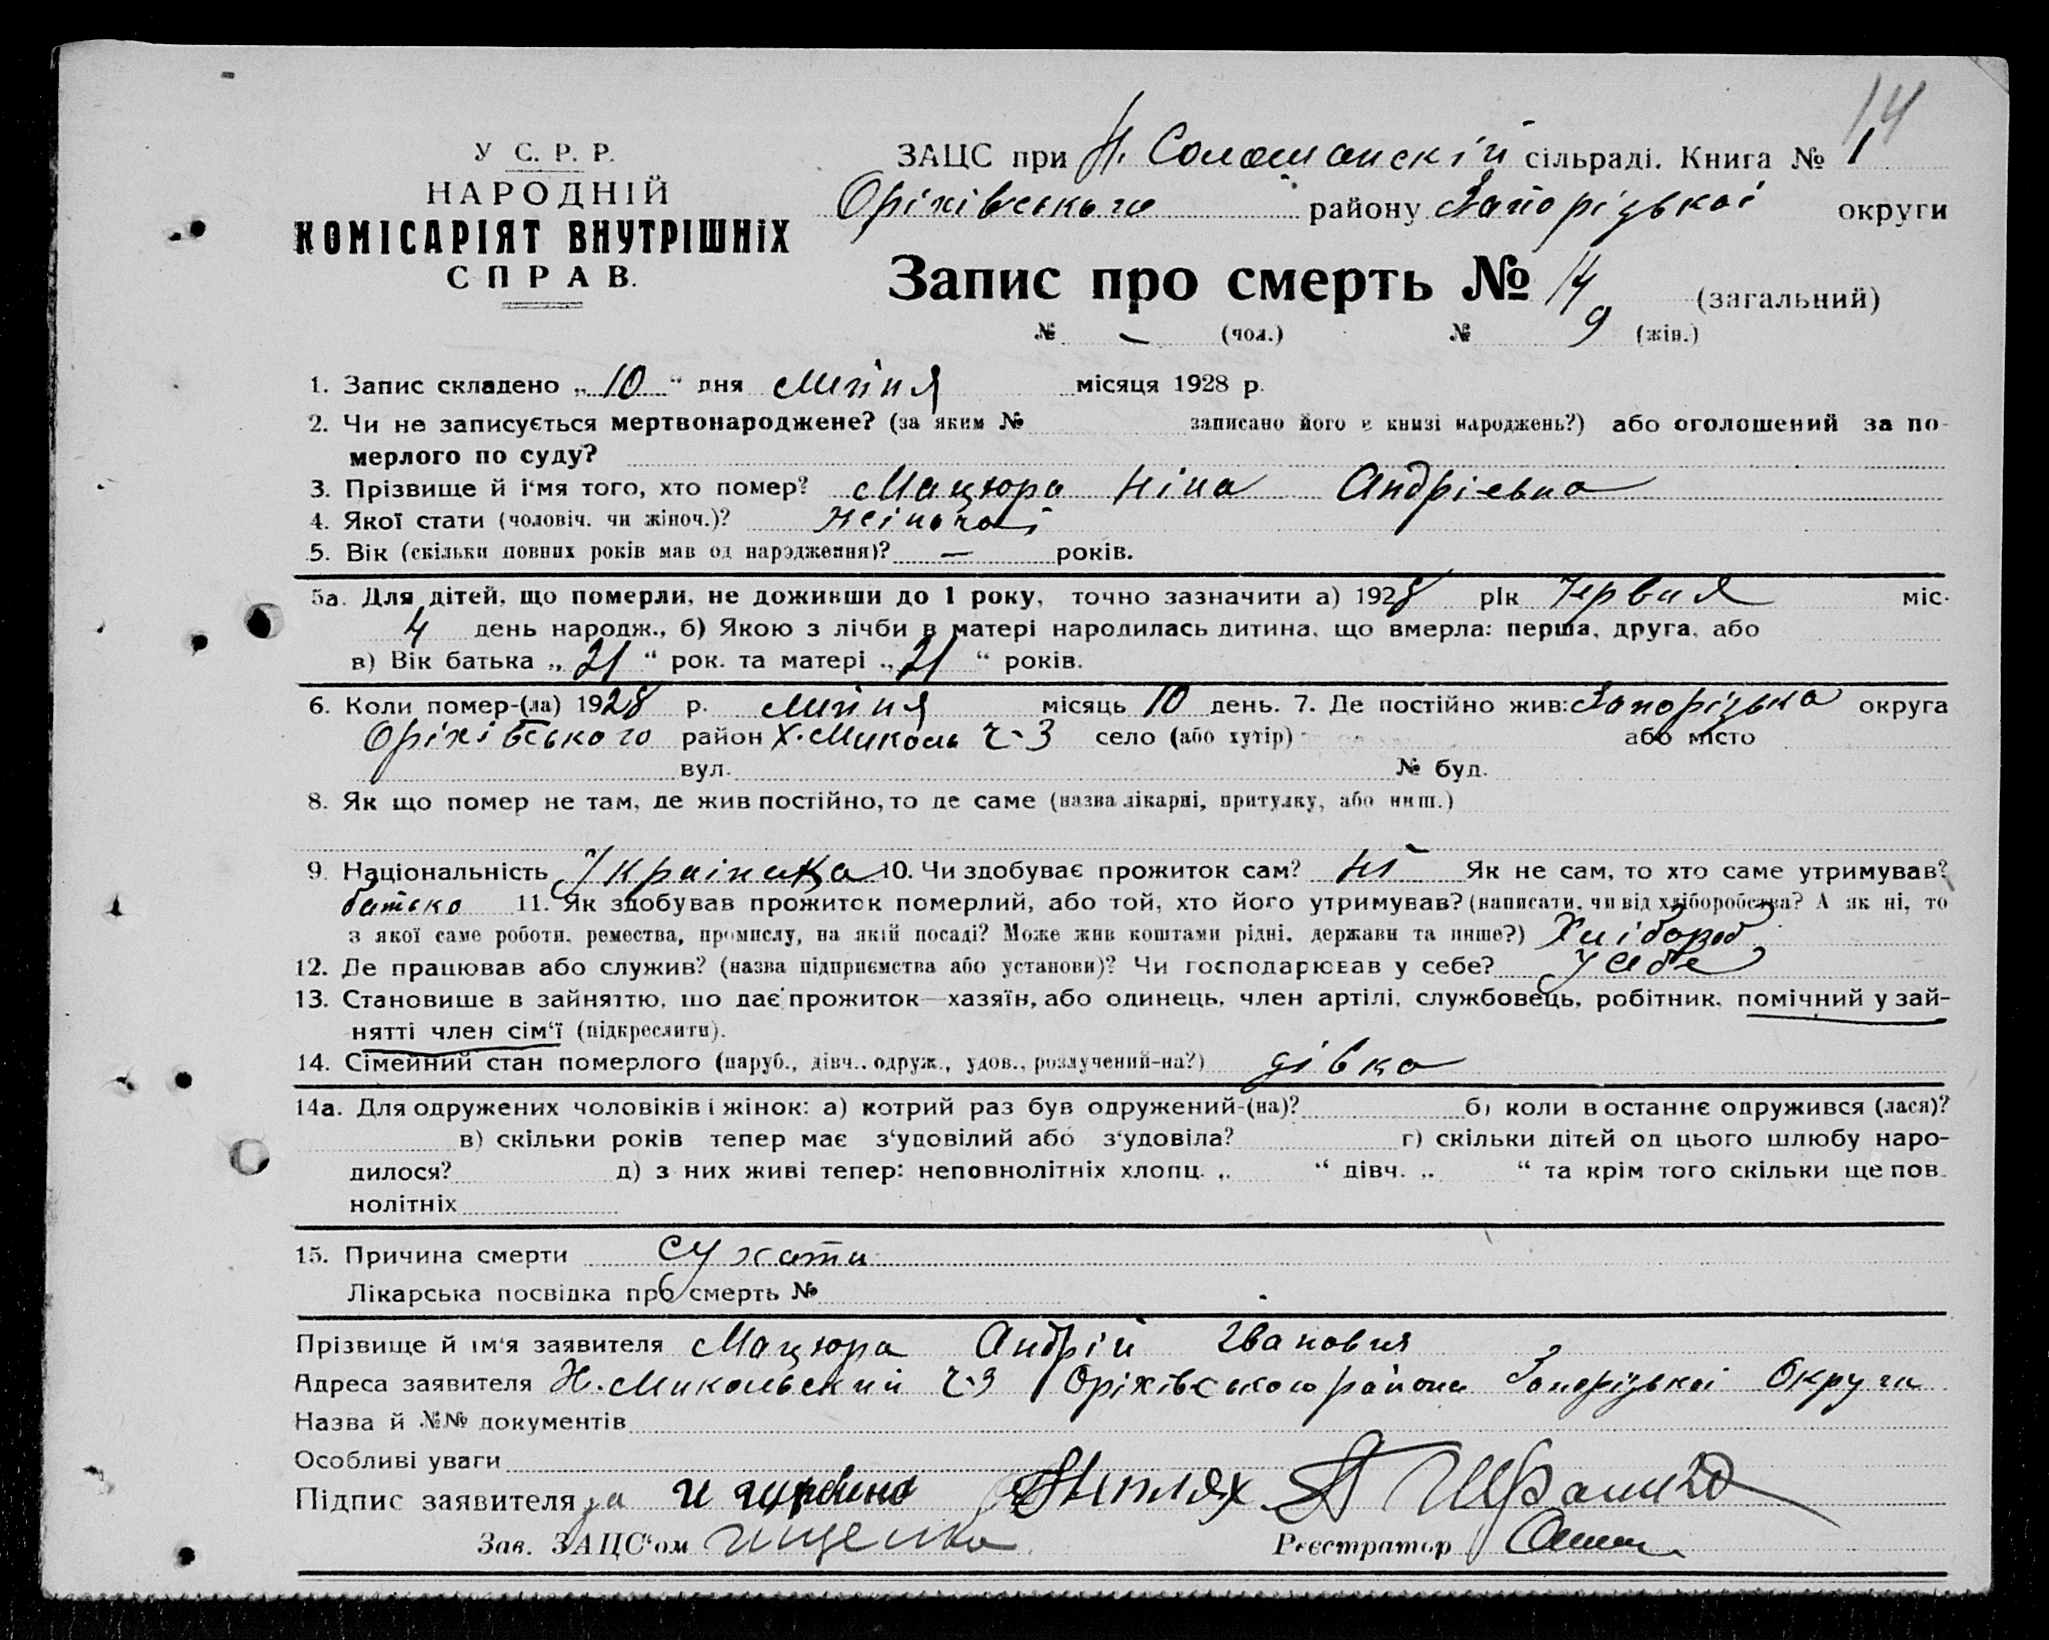 14
У С. Р. Р.
НАРОДНІЙ
КОМІСАРІЯТ ВНУТРІШНІХ
СПРАВ.
ЗАЦС при Н. сільраді. Книга № 1
Оріхівського району Запорізької округи
Запис про смерть № 14 (загальний)
№ – (чол.) № 9 (жін.)
1. Запис складено „ 10 “ дня липня місяця 1928 р.
2. Чи не записується мертвонароджене? (за яким № записано його в книзі народжень?) або оголошений за по-
мерлого по суду?
3. Прізвище й і'мя того, хто помер? Мацюра Ніна Андріевна
4. Якої стати (чоловіч. чи жіноч.)? жіночоі
5. Вік (скільки повних років мав од народження)? — років.
5а. Для дітей, що померли, не доживши до 1 року, точно зазначити а) 1928 рік Червня міс.
4 день народж., б) Якою з лічби в матері народилась дитина, що вмерла: перша, друга, або
в) Вік батька „ 21 “ рок. та матері „ 21 “ років.
6. Коли помер-(ла) 1928 р. липня місяць 10 день. 7. Де постійно жив: Запорізька округа
Оріхівського район Х. Миколь ч-3 село (або хутір) або місто
вул. № буд.
8. Як що помер не там, де жив постійно, то де саме (назва лікарні, притулку, або инш.)
9. Національність Українка 10. Чи здобуває прожиток сам? ні Як не сам, то хто саме утримував?
батько 11. Як здобував прожиток померлий, або той, хто його утримував? (написати, чи від хліборобства? А як ні, то
з якої саме роботи, ремества, промислу, на якій посаді? Може жив коштами рідні, держави та инше?) Хлібороб
12. Де працював або служив? (назва підприємства або установи)? Чи господарював у себе? у себе
13. Становище в зайняттю, що дає прожиток—хазяїн, або одинець, член артілі, службовець, робітник, помічний у зай-
нятті член сім'ї (підкреслити).
14. Сімейний стан померлого (паруб., дівч., одруж., удов., розлучений-на?) дівка
14а. Для одружених чоловіків і жінок: а) котрий раз був одружений-(на)? б) коли в останнє одружився (лася)?
в) скільки років тепер має з'удовілий або з'удовіла? г) скільки дітей од цього шлюбу наро-
дилося? д) з них живі тепер: неповнолітніх хлопц. „ “ дівч. „ “ та крім того скільки ще пов-
нолітніх
15. Причина смерти сухоти
Лікарська посвідка про смерть №
Прізвище й ім'я заявителя Мацюра Андрій Іванович
Адреса заявителя Н. Микольський ч-3 Оріхівського району Запорізької Округи
Назва й №№ документів
Особливі уваги
Підпис заявителя за
Зав. ЗАЦС'ом Іщенко Реєстратор